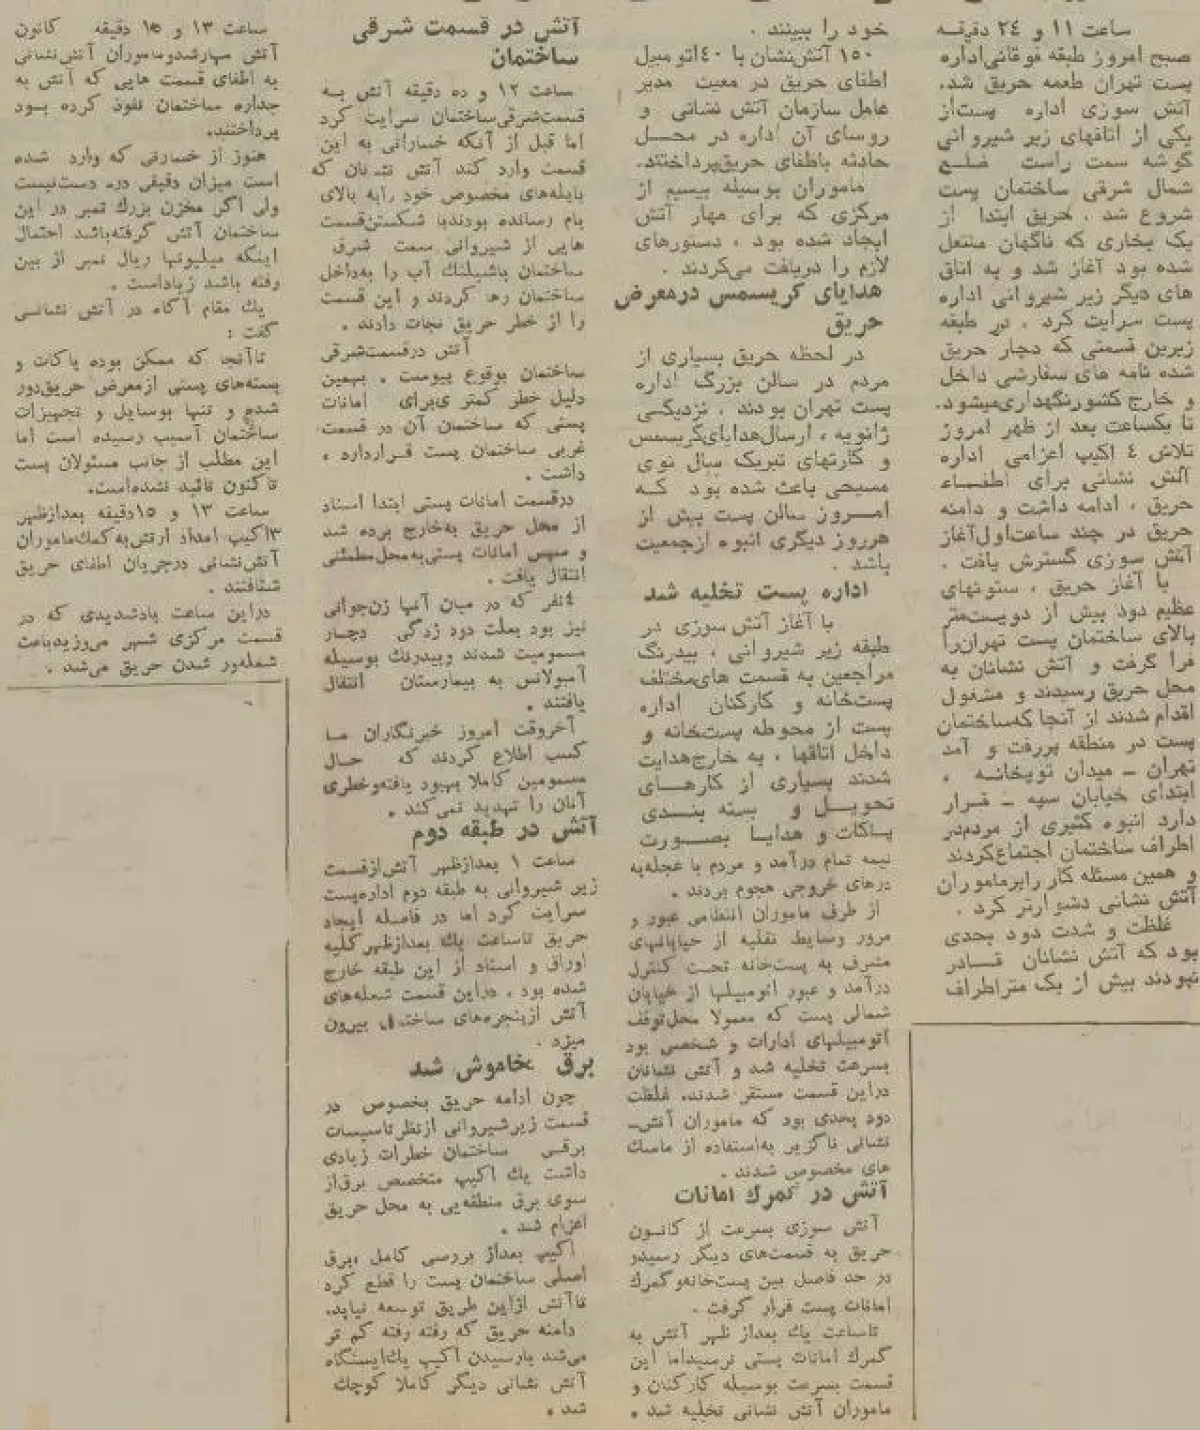 ساعت ۱۱ و ۲۴ دقیقه
صبح امروز طبقه فوقانی اداره
پست تهران طعمه حریق شد.
آتش سوزی اداره پست از
یکی از اتاقهای زیر شیروانی
گوشه سمت راست ضلع
شمال شرقی ساختمان پست
شروع شد . حریق ابتدا از
یک بخاری که ناگهان مشتعل
شده بود آغاز شد و به اتاق
های دیگر زیر شیروانی اداره
پست سرایت کرد . در طبقه
زیرین قسمتی که دچار حریق
شده نامه های سفارشی داخل
و خارج کشور نگهداری میشود.
تا یکساعت بعد از ظهر امروز
تلاش ٤ اکیپ اعزامی اداره
آتش نشانی برای اطفـاء
حریق ، ادامه داشت و دامنه
حریق در چند ساعت اول آغاز
آتش سوزی گسترش یافت .
با آغاز حریق ، ستونهای
عظیم دود بیش از دویست متر
بالای ساختمان پست تهران را
فرا گرفت و آتش نشانان به
محل حریق رسیدند و مشغول
اقدام شدند از آنجا که ساختمان
پست در منطقه پررفت و آمد
تهران ـ میدان توپخانـه ،
ابتدای خیابان سپه ـ قـرار
دارد انبوه کثیری از مردم در
اطراف ساختمان اجتماع کردند
و همین مسئله کار را بر ماموران
آتش نشانی دشوارتر کرد .
غلظت و شدت دود بحدی
بود که آتش نشانان قــادر
نبودند بیش از یک متر اطراف
خود را ببینند .
۱۵۰ آتش نشان با ۴۰ اتومبیل
اطفای حریق در معیت مدیر
عامل سازمان آتش نشانی و
روسای آن اداره در محـــل
حادثه باطفای حریق پرداختند.
ماموران بوسیله بیسیم از
مرکزی که برای مهار آتش
ایجاد شده بود ، دستورهای
لازم را دریافت می‌کردند .
هدایای کریسمس در معرض
حریق
در لحظه حریق بسیاری از
مردم در سالن بزرگ اداره
پست تهران بودند . نزدیکـی
ژانویه ، ارسال هدایای کریسمس
و کارتهای تبریک سال نوی
مسیحی باعث شده بود کـه
امــروز سالن پست بیش از
هر روز دیگری انبوه از جمعیت
باشد .
اداره پست تخلیه شد
با آغاز آتش سوزی در
طبقه زیر شیروانی ، بیدرنگ
مراجعین به قسمت های مختلف
پست‌خانه و کارکنان اداره
پست از محوطه پست‌خانه و
داخل اتاقها ، به خارج هدایت
شدند بسیاری از کارهــای
تحویــل و بسته بنــدی
پـاکات و هدایـا بصـورت
نیمه تمام درآمد و مردم با عجله به
درهای خروجی هجوم بردند .
از طرف ماموران انتظامی عبور و
مرور وسایط نقلیه از خیابانهای
مشرف به پست‌خانه تحـت کنترل
درآمد و عبور اتومبیلها از خیابان
شمالی پست که معمولا محل توقف
اتومبیلهای ادارات و شخصی بود
بسرعت تخلیه شد و آتش نشانان
در این قسمت مستقر شدند. غلظت
دود بحدی بود که ماموران آتش‌ـ
نشانی ناگزیر به استفاده از ماسک
های مخصوص شدند .
آتش در گمرک امانات
آتش سوزی بسرعت از کانـون
حریق به قسمت‌های دیگر رسید و
در حد فاصل بین پست‌خانه و گمرک
امانات پست قرار گرفت .
تا ساعت یک بعد از ظهر آتش به
گمرک امانات پستی نرسید اما این
قسمت بسرعت بوسیله کارکنان و
ماموران آتش نشانی تخلیه شد .
آتش در قسمت شرقی
ساختمان
ساعت ۱۲ و ده دقیقه آتش بـه
قسمت شرقی ساختمان سرایت کرد
اما قبل از آنکه خساراتی به این
قسمت وارد کند آتش نشـانان که
با پله‌های مخصوص خود را به بالای
بام رسانده بودند با شکستن قسمت
هایی از شیروانی سمت شرق
ساختمان با شیلنگ آب را به داخل
ساختمان رها کردند و این قسمت
را از خطر حریق نجات دادند .
آتش در قسمت شرقی
ساختمان بوقوع پیوست . بهمین
دلیل خطر کمتری برای امانات
پستی که ساختمان آن در قسمت
غربی ساختمان پست قـرار دارد ،
داشت .
در قسمت امانات پستی ابتدا اسناد
از محل حریق به خارج برده شد
و سپس امانات پستی به محل مطمئنی
انتقال یافت .
٤ نفر که در میان آنها زن جوانی
نیز بود بعلت دود زدگی دچـار
مسمومیت شدند و بیدرنگ بوسیله
آمبولانس به بیمارستان انتقال
یافتند .
آخروقت امروز خبرنگاران مـا
کسب اطلاع کردند که حـال
مسمومین کاملا بهبود یافته و خطری
آنان را تهدید نمی‌کند .
آتش در طبقه دوم
ساعت ۱ بعد از ظهر آتش از قسمت
زیر شیروانی به طبقه دوم اداره پست
سرایت کرد اما در فاصله ایجاد
حریق تا ساعت یک بعد از ظهر کلیه
اوراق و اسناد از این طبقه خارج
شده بود . در این قسمت شعله‌های
آتش از پنجره‌های ساختمان بیرون
میزد .
برق خاموش شد
چون ادامه حریق بخصوص در
قسمت زیر شیروانی از نظر تاسیسات
برقـی ساختمان خطرات زیادی
داشت یک اکیپ متخصص برق از
سوی برق منطقه‌یی به محل حریق
اعزام شد .
اکیپ بعد از بررسی کامل ، برق
اصلی ساختمان پست را قطع کرد
تا آتش از این طریق توسعه نیابد.
دامنه حریق که رفته رفته کم تر
می‌شد با رسیدن اکیپ یک ایستگاه
آتش نشانی دیگر کاملا کوچک
شد .
ساعت ۱۳ و ۱۵ دقیقه کانون
آتش مهار شد و ماموران آتش نشانی
به اطفای قسمت هایی که آتش به
جداره ساختمان نفوذ کرده بـود
پرداختند.
هنوز از خسارتی که وارد شده
است میزان دقیقی در دست نیست
ولی اگر مخزن بزرگ تمبر در این
ساختمان آتش گرفته باشد احتمال
اینکه میلیونها ریال تمبر از بین
رفته باشد زیاد است .
یک مقام آگاه در آتش نشانــی
گفت :
تا آنجا که ممکن بوده پاکات و
بسته‌های پستی از معرض حریق دور
شده و تنها بوسایل و تجهیزات
ساختمان آسیب رسیده است اما
این مطلب از جانب مسئولان پست
تاکنون تائید نشده است.
ساعت ۱۳ و ۱۵ دقیقه بعد از ظهر
۳ اکیپ امداد ارتش به کمک ماموران
آتش نشانی در جریان اطفای حریق
شتافتند .
در این ساعت باد شدیدی که در
قسمت مرکزی شهر می‌وزید باعث
شعله‌ور شدن حریق می‌شد .